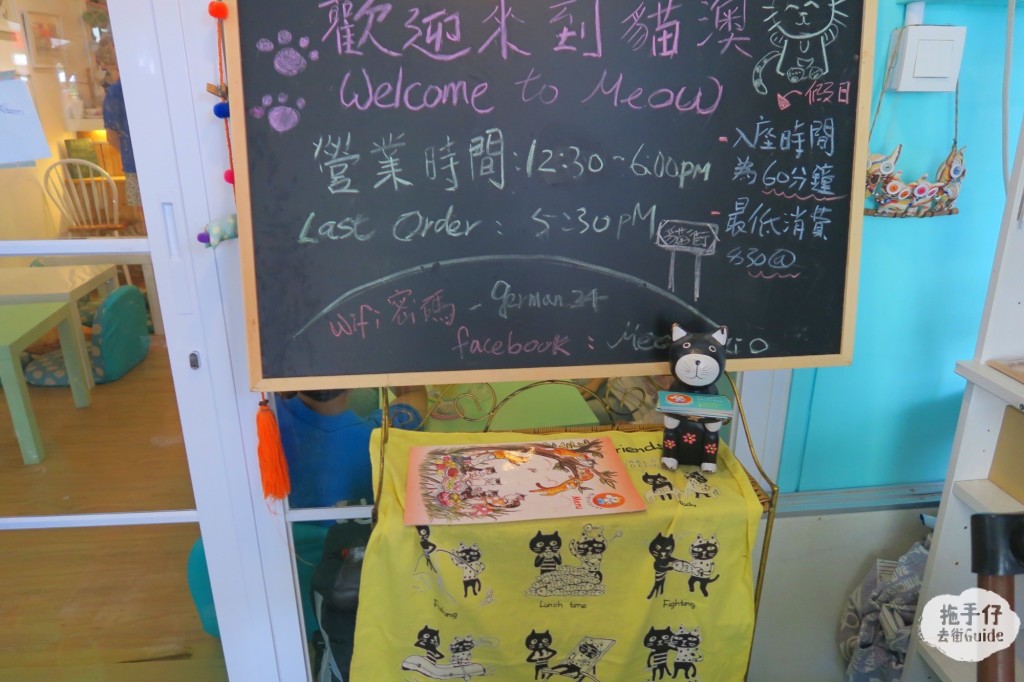 歡迎來到貓澳
Welcome to Meow
營業時間:12:30~6:00pm
Last Order : 5:30pm
貓街
假日
- 入座時間
為60分鐘
- 最低消費
$30@
Wifi密碼 - german24
facebook :
Friends
Fishing
Lunch time
Fighting
拖手仔
去街Guide